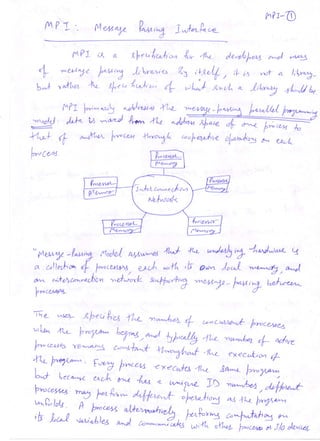 MPI-①
MPI : Message Passing Interface
MPI is a specification for the developers and users
of message passing libraries. By itself, it is not a library
but rather the specification of what such a library should be
MPI primarily addresses the message-passing parallel programming
model: data is moved from the address space of one process to
that of another process through cooperative operations on each
process.
Processor
Memory
Processor
Memory
Processor
Memory
Interconnection
Network
Processor
Memory
Processor
Memory
"Message-Passing Model assumes that the underlying hardware is
a collection of processors, each with its own local memory, and
an interconnection network supporting message-passing between
processors.
The user specifies the number of concurrent processes
when the program begins, and typically the number of active
processes remains constant throughout the execution of
the program. Every process executes the same program
but because each one has a unique ID number, different
processes may perform different operations as the program
unfolds. A process alternatively performs computation on
its local variables and communicates with other process or I/o devices